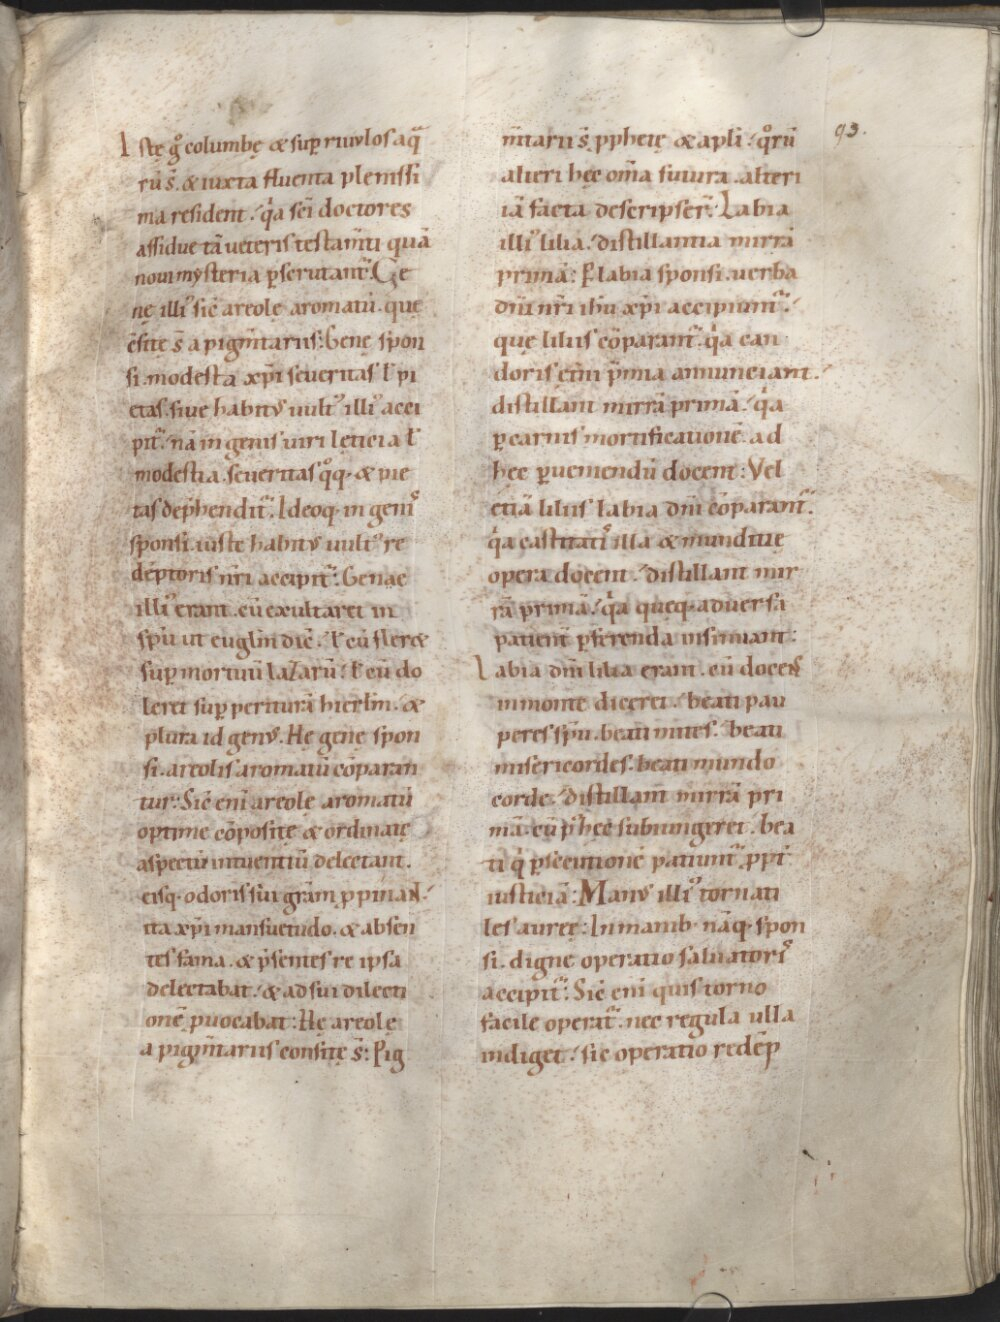 Istę gͦ columbę & suꝑ riuulos aq̄
rū s̄. & iuxta fluenta plenissi
ma resident. qͥa sc̄i doctores
assidue tā ueteris testam̄ti quā
noui mysteria ꝑscrutant᷑. Ge
nę illiꝰ sic̄ areolę aromatū. quę
c̄sitę s̄ a pigm̄tariis: Genę spon
si. modesta xp̄i seueritas ł pi
etas. siue habitꝰ uultꝰ illiꝰ acci
pit᷑. nā in genis uiri lęticia ł
modestia. seueritas qͦq; & pie
tas dep̄hendit᷑. Ideoq; in geniͦ
sponsi. iuste habitꝰ uultꝰ re
dēptoris nr̄i accipit᷑. Genae
illiꝰ erant. cū exultaret in
sp̄u ut euglm̄ dic̄. ł cū fler&
suꝑ mortuū lazarū. ł cū do
leret suꝑ periturā hierlm̄. &
plura id genꝰ. Hę genę spon
si. areolis aromatū cōparan
tur: Sic̄ eni areolę aromatū
optime cōpositę & ordinatę
aspectū intuentiū delectant.
eisq; odoris sui grām ꝓpinaN.
ita xp̄i mansuetudo. & absen
tes fama. & p̄sentes re ipsa
delectabat. & ad sui dilecti
onē ꝓuocabat: Hę areolę
a pigm̄tariis consitę s̄: Pig
m̄tarii s̄ ꝓphetę & apl̄i. qͦrū
alteri hęc om̄a futura. alteri
iā facta descripser̄. Labia
illiꝰ lilia. distillantia mirrā
primā: P labia sponsi. uerba
dn̄i nr̄i ihū xp̄i accipiunt᷑.
que liliis cōparant᷑. qͥa can
doris et̄ni p̄mia annunciant.
distillant mirrā primā. qͥa
ꝑ carnis mortificationē. ad
hęc ꝑueniendū docent: Vel
etiā liliis labia dn̄i cōparant᷑.
qͥa castitatiͦ illa & munditię
opera docent. distillant mir
rā primā. qͥa queq; aduersa
patient̄ ꝑferenda insinuant:
Labia dn̄i lilia erant. cū docens
in monte diceret. beati pau
peres sp̄u. beati mites. beati
misericordes. beati mundo
corde. distillant mirrā pri
mā. cū p̄ hęc subiungeret. bea
ti qͥ ꝑsecutionē patiunt᷑ ꝓpt̄
iusticiā: Manꝰ illiꝰ tornati
les aureę: In manib; nāq; spon
si. digne operatio saluatoriͦ
accipit᷑: Sic̄ eni quis torno
facile operat᷑. nec regula ulla
indiget. sic operatio redēp
93.